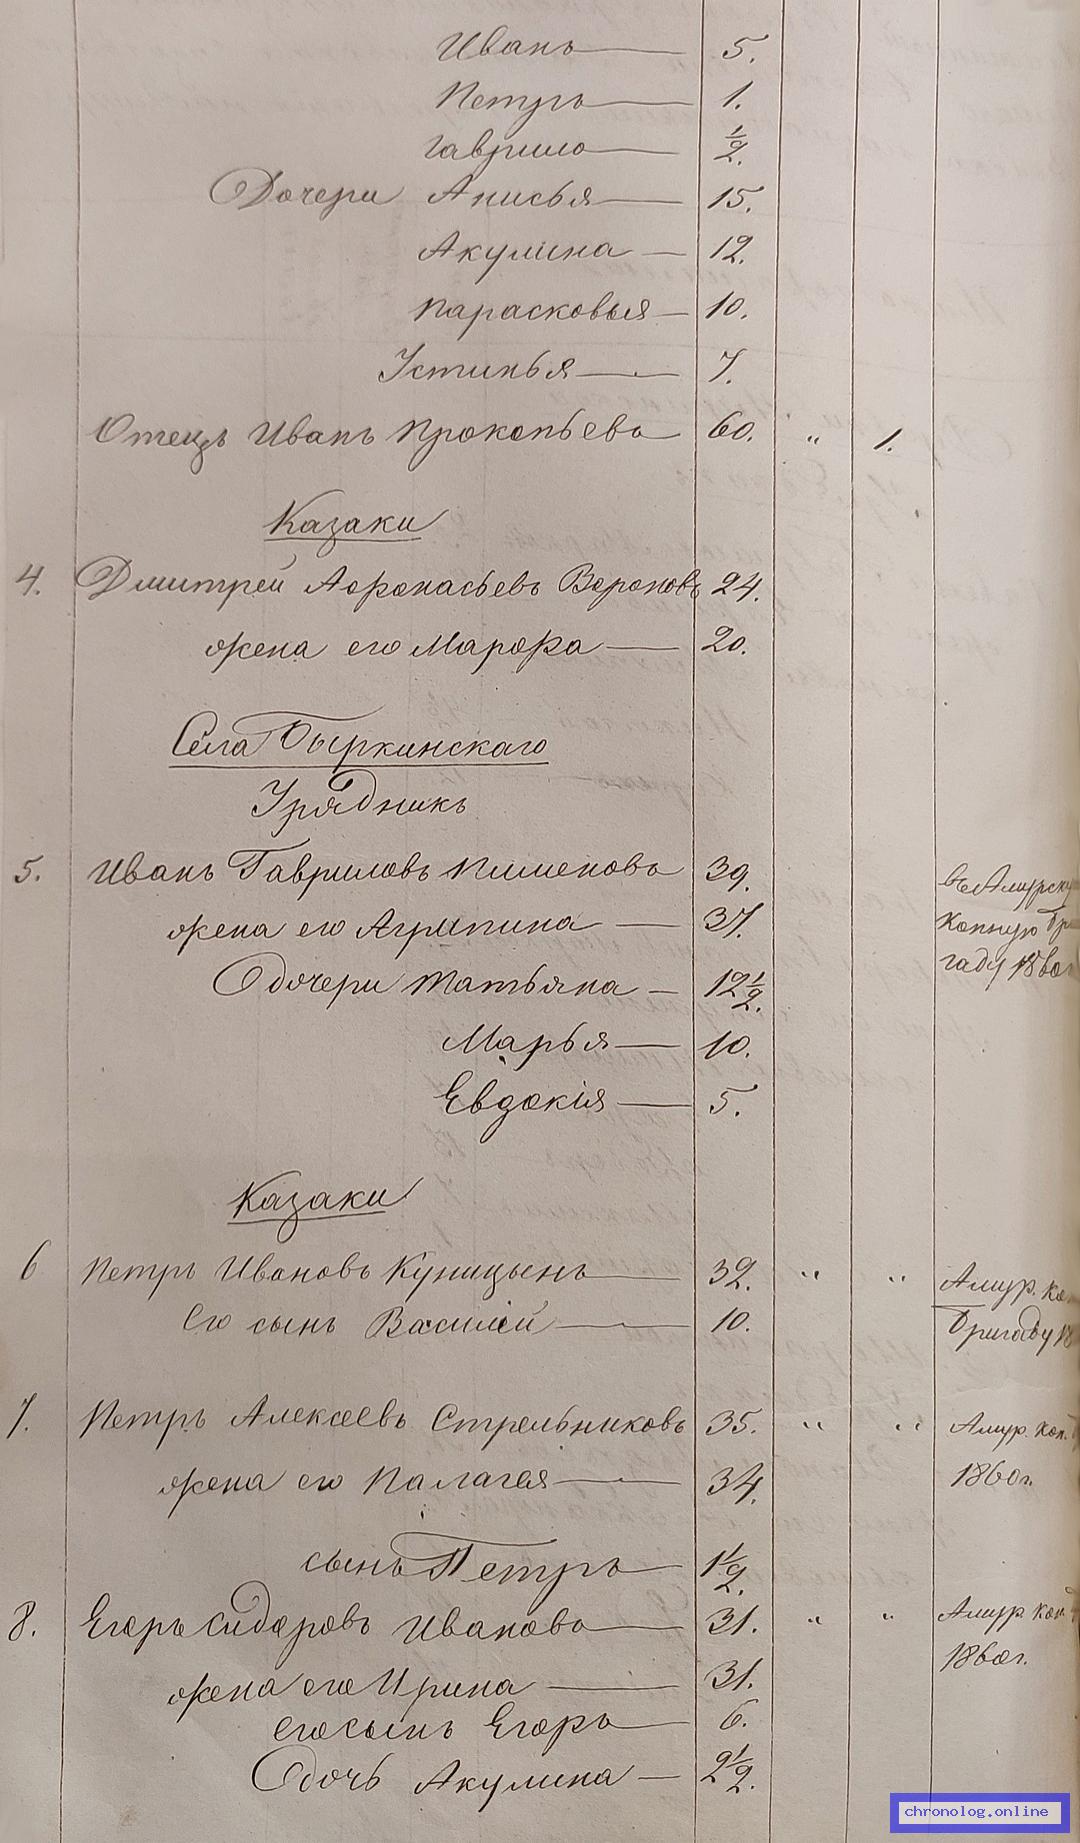 Иванъ 5.
Петръ 1.
Гаврило 1/2.
Дочери Анисья 15.
Акулина 12.
Парасковья 10.
Устинья 7.
Отецъ Иванъ Прокопьевъ 60. " 1.
Казаки
4. Дмитрей Афонасьевъ Вороновъ 24.
жена его Марфа 20.
Села Быркинскаго
Урядникъ
5. Иванъ Гавриловъ Пименовъ 39. въ Амурску
жена его Агрипина 37. конную бри
дочери Татьяна 12 1/2. гаду 1860г
Марья 10.
Евдокія 5.
Казаки
6 Петръ Ивановъ Куницынъ 32. " " Амур. ко
Его сынъ Василій 10. бригаду 18
7. Петръ Алексеевъ Стрельниковъ 35. " " Амур. кон.
жена его Палагея 34. 1860г.
сынъ Петръ 1 1/2.
8. Егоръ Сидоровъ Ивановъ 31. " " Амур. кон
жена его Ирина 31. 1860г.
его сынъ Егоръ 6.
дочь Акулина 2 1/2.
chronolog.online